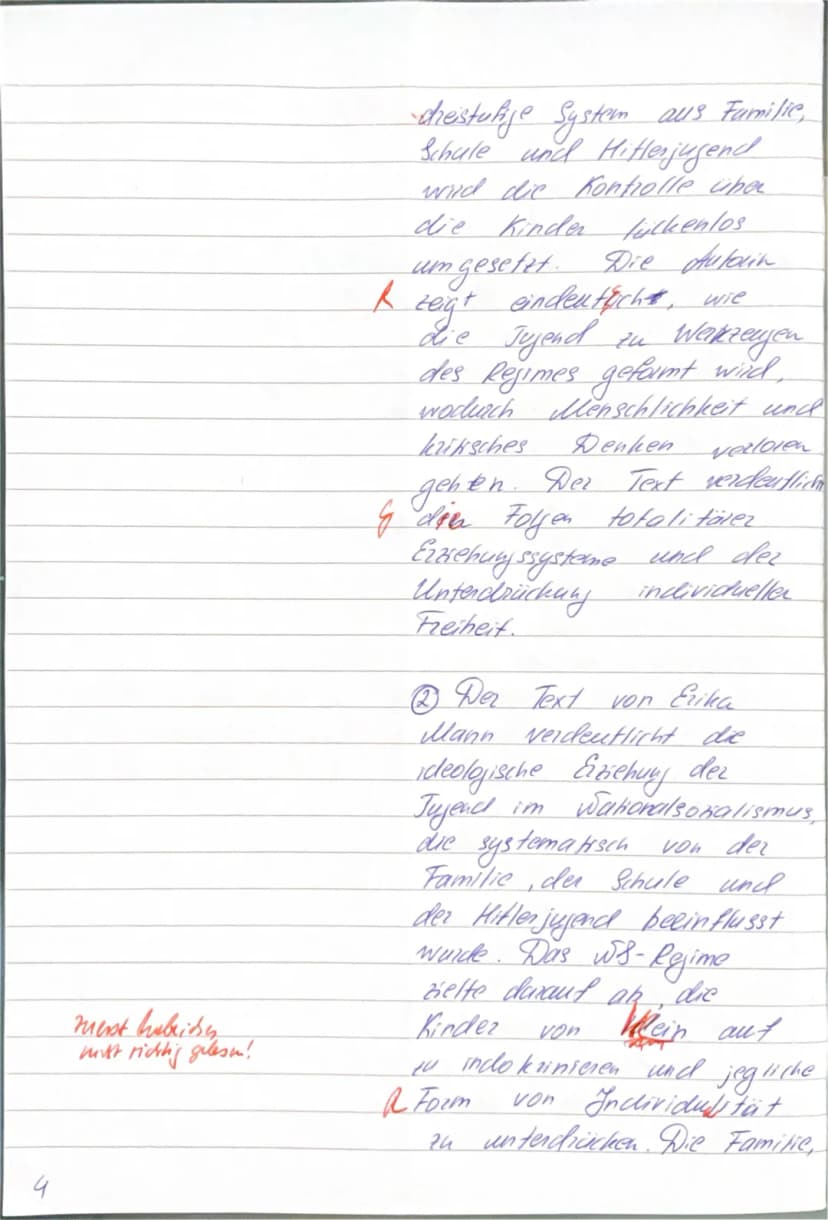 dreistufige System aus Familie,
Schule und Hitlerjugend
wird die Kontrolle über
die Kinder lückenlos
umgesetzt. Die Autorin
R zeigt eindeutlich, wie
die Jugend zu Werkzeugen
des Regimes geformt wird,
wodurch Menschlichkeit und
kritisches Denken verloren
gehen. Der Text verdeutlich
G die Folgen totalitärer
Erziehungssysteme und der
Unterdrückung individueller
Freiheit.
② Der Text von Erika
Mann verdeutlicht die
ideologische Erziehung der
Jugend im Nationalsozialismus,
die systematisch von der
Familie, der Schule und
der Hitlerjugend beeinflusst
wurde. Das NS-Regime
zielte darauf ab, die
Kinder von klein auf
zu indoktrinieren und jegliche
R Form von Individualität
zu unterdrücken. Die Familie,
zuerst
nicht richtig gelesen!
4